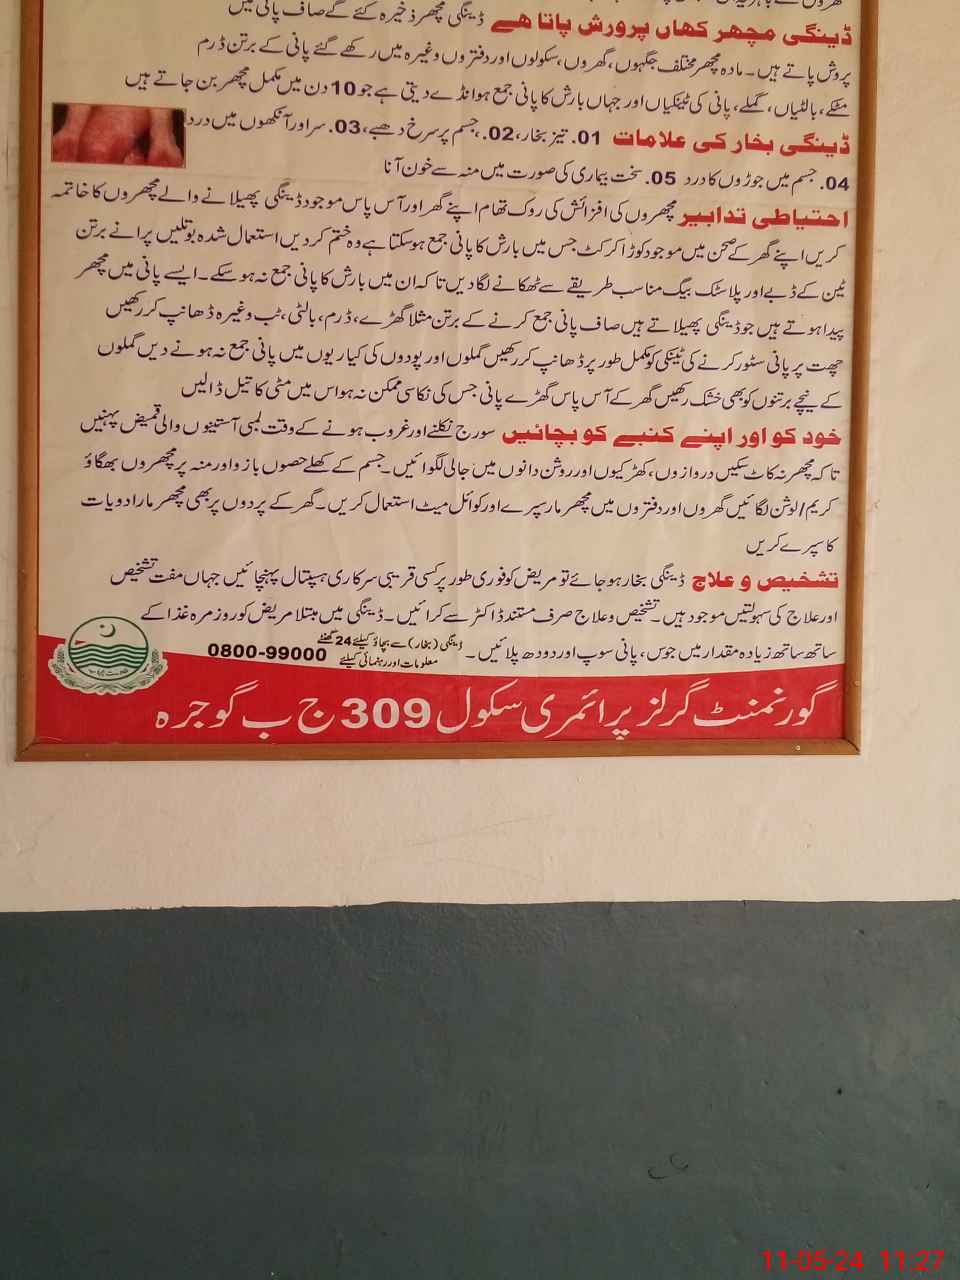 ڈینگی مچھر کہاں پرورش پاتا ہے ڈینگی مچھر ذخیرہ کئے گئے صاف پانی میں
پرورش پاتے ہیں۔ مادہ مچھر مختلف جگہوں، گھروں، سکولوں اور دفتروں وغیرہ میں رکھے گئے پانی کے برتن ڈرم
مٹکے، بالٹیاں، گملے، پانی کی ٹینکیاں اور جہاں بارش کا پانی جمع ہو انڈے دیتی ہے جو 10 دن میں مکمل مچھر بن جاتے ہیں
ڈینگی بخار کی علامات 01. تیز بخار، 02.، جسم پر سرخ دھبے، 03. سر اور آنکھوں میں درد
04. جسم میں جوڑوں کا درد 05. سخت بیماری کی صورت میں منہ سے خون آنا
احتیاطی تدابیر مچھروں کی افزائش کی روک تھام اپنے گھر اور آس پاس موجود ڈینگی پھیلانے والے مچھروں کا خاتمہ
کریں اپنے گھر کے صحن میں موجود کوڑا کرکٹ جس میں بارش کا پانی جمع ہوسکتا ہے وہ ختم کر دیں استعمال شدہ بوتلیں پرانے برتن
ٹین کے ڈبے اور پلاسٹک بیگ مناسب طریقے سے ٹھکانے لگا دیں تاکہ ان میں بارش کا پانی جمع نہ ہو سکے۔ ایسے پانی میں مچھر
پیدا ہوتے ہیں جو ڈینگی پھیلاتے ہیں صاف پانی جمع کرنے کے برتن مثلاً گھڑے، ڈرم، بالٹی، ٹب وغیرہ ڈھانپ کر رکھیں
چھت پر پانی سٹور کرنے کی ٹینکی کو مکمل طور پر ڈھانپ کر رکھیں گملوں اور پودوں کی کیاریوں میں پانی جمع نہ ہونے دیں گملوں
کے نیچے برتنوں کو بھی خشک رکھیں گھر کے آس پاس گھڑے پانی جس کی نکاسی ممکن نہ ہو اس میں مٹی کا تیل ڈالیں
خود کو اور اپنے کنبے کو بچائیں سورج نکلنے اور غروب ہونے کے وقت لمبی آستینوں والی قمیض پہنیں
تاکہ مچھر نہ کاٹ سکیں دروازوں، کھڑکیوں اور روشن دانوں میں جالی لگوائیں۔ جسم کے کھلے حصوں بازو اور منہ پر مچھروں بھگاؤ
کریم/لوشن لگائیں گھروں اور دفتروں میں مچھر مار سپرے اور کوائل میٹ استعمال کریں۔ گھر کے پردوں پر بھی مچھر مار ادویات
کا سپرے کریں
تشخیص و علاج ڈینگی بخار ہو جائے تو مریض کو فوری طور پر کسی قریبی سرکاری ہسپتال پہنچائیں جہاں مفت تشخیص
اور علاج کی سہولتیں موجود ہیں۔ تشخیص و علاج صرف مستند ڈاکٹر سے کرائیں۔ ڈینگی میں مبتلا مریض کو روزمرہ غذا کے
ساتھ ساتھ زیادہ مقدار میں جوس، پانی سوپ اور دودھ پلائیں۔
ڈینگی (بخار) سے بچاؤ کیلئے 24 گھنٹے
معلومات اور رہنمائی کیلئے
0800-99000
گورنمنٹ گرلز پرائمری سکول 309 ج ب گوجرہ
11-05-24 11:27